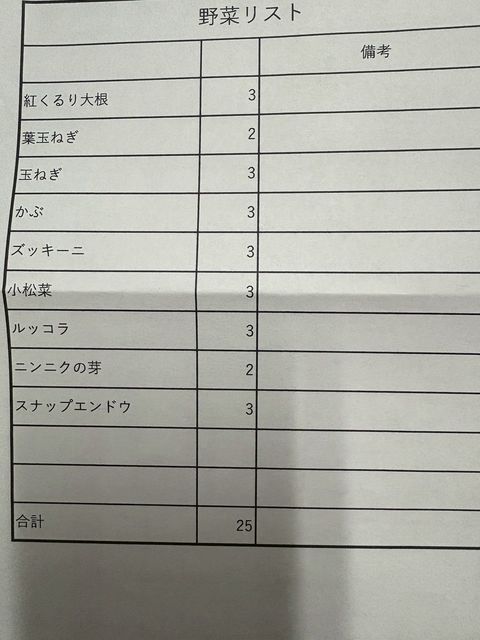 野菜リスト
備考
紅くるり大根 3
葉玉ねぎ 2
玉ねぎ 3
かぶ 3
ズッキーニ 3
小松菜 3
ルッコラ 3
ニンニクの芽 2
スナップエンドウ 3
合計 25